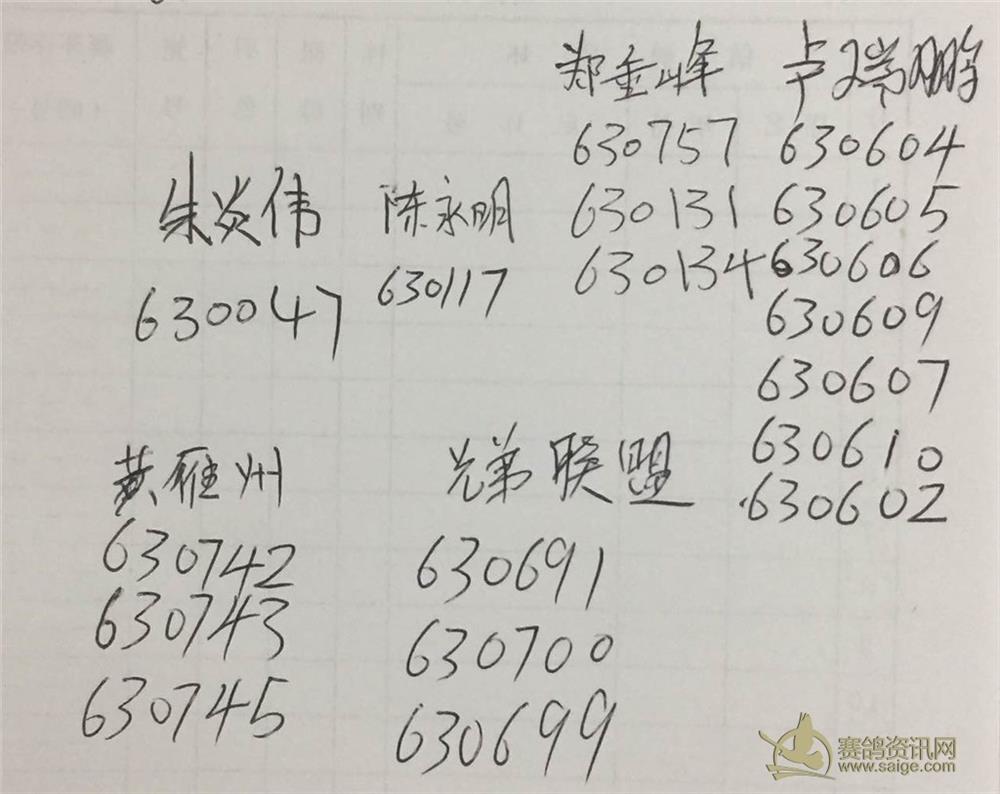 朱炎伟
630047
陈永明
630117
郑垂峰
630757
630131
630134
卢瑞鹏
630604
630605
630606
630609
630607
630610
630602
黄雁州
630742
630743
630745
兄弟联盟
630691
630700
630699
赛鸽资讯网
www.saige.com